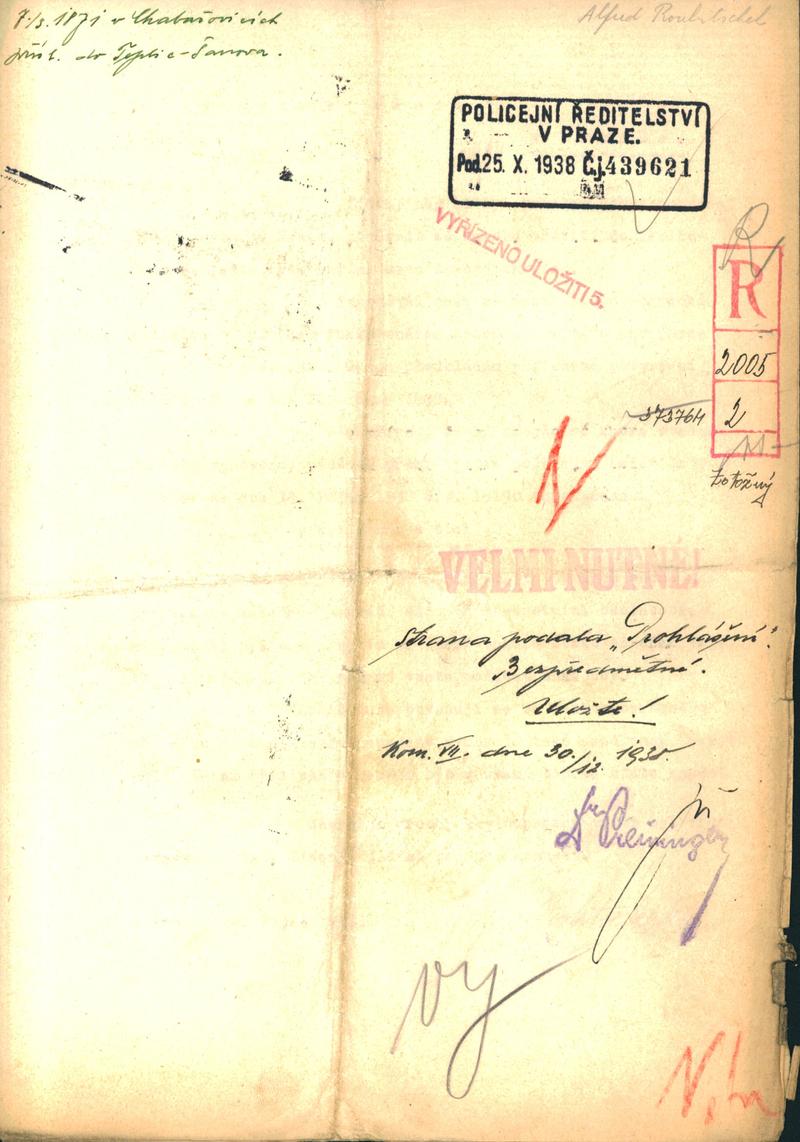 7./3. 1871 v Chabařovicích
přísl. do Teplic-Šanova.
Alfred
POLICEJNÍ ŘEDITELSTVÍ
V PRAZE.
Pod. 25. X. 1938 Č.j. 439621
VYŘÍZENO ULOŽITI 5.
R
R
2005
373764
2
totožný
VELMI NUTNÉ!
Strana podala „Prohlášení".
Bezpředmětné.
Uložte!
Kom. VII. dne 30./12. 1938.
Dr